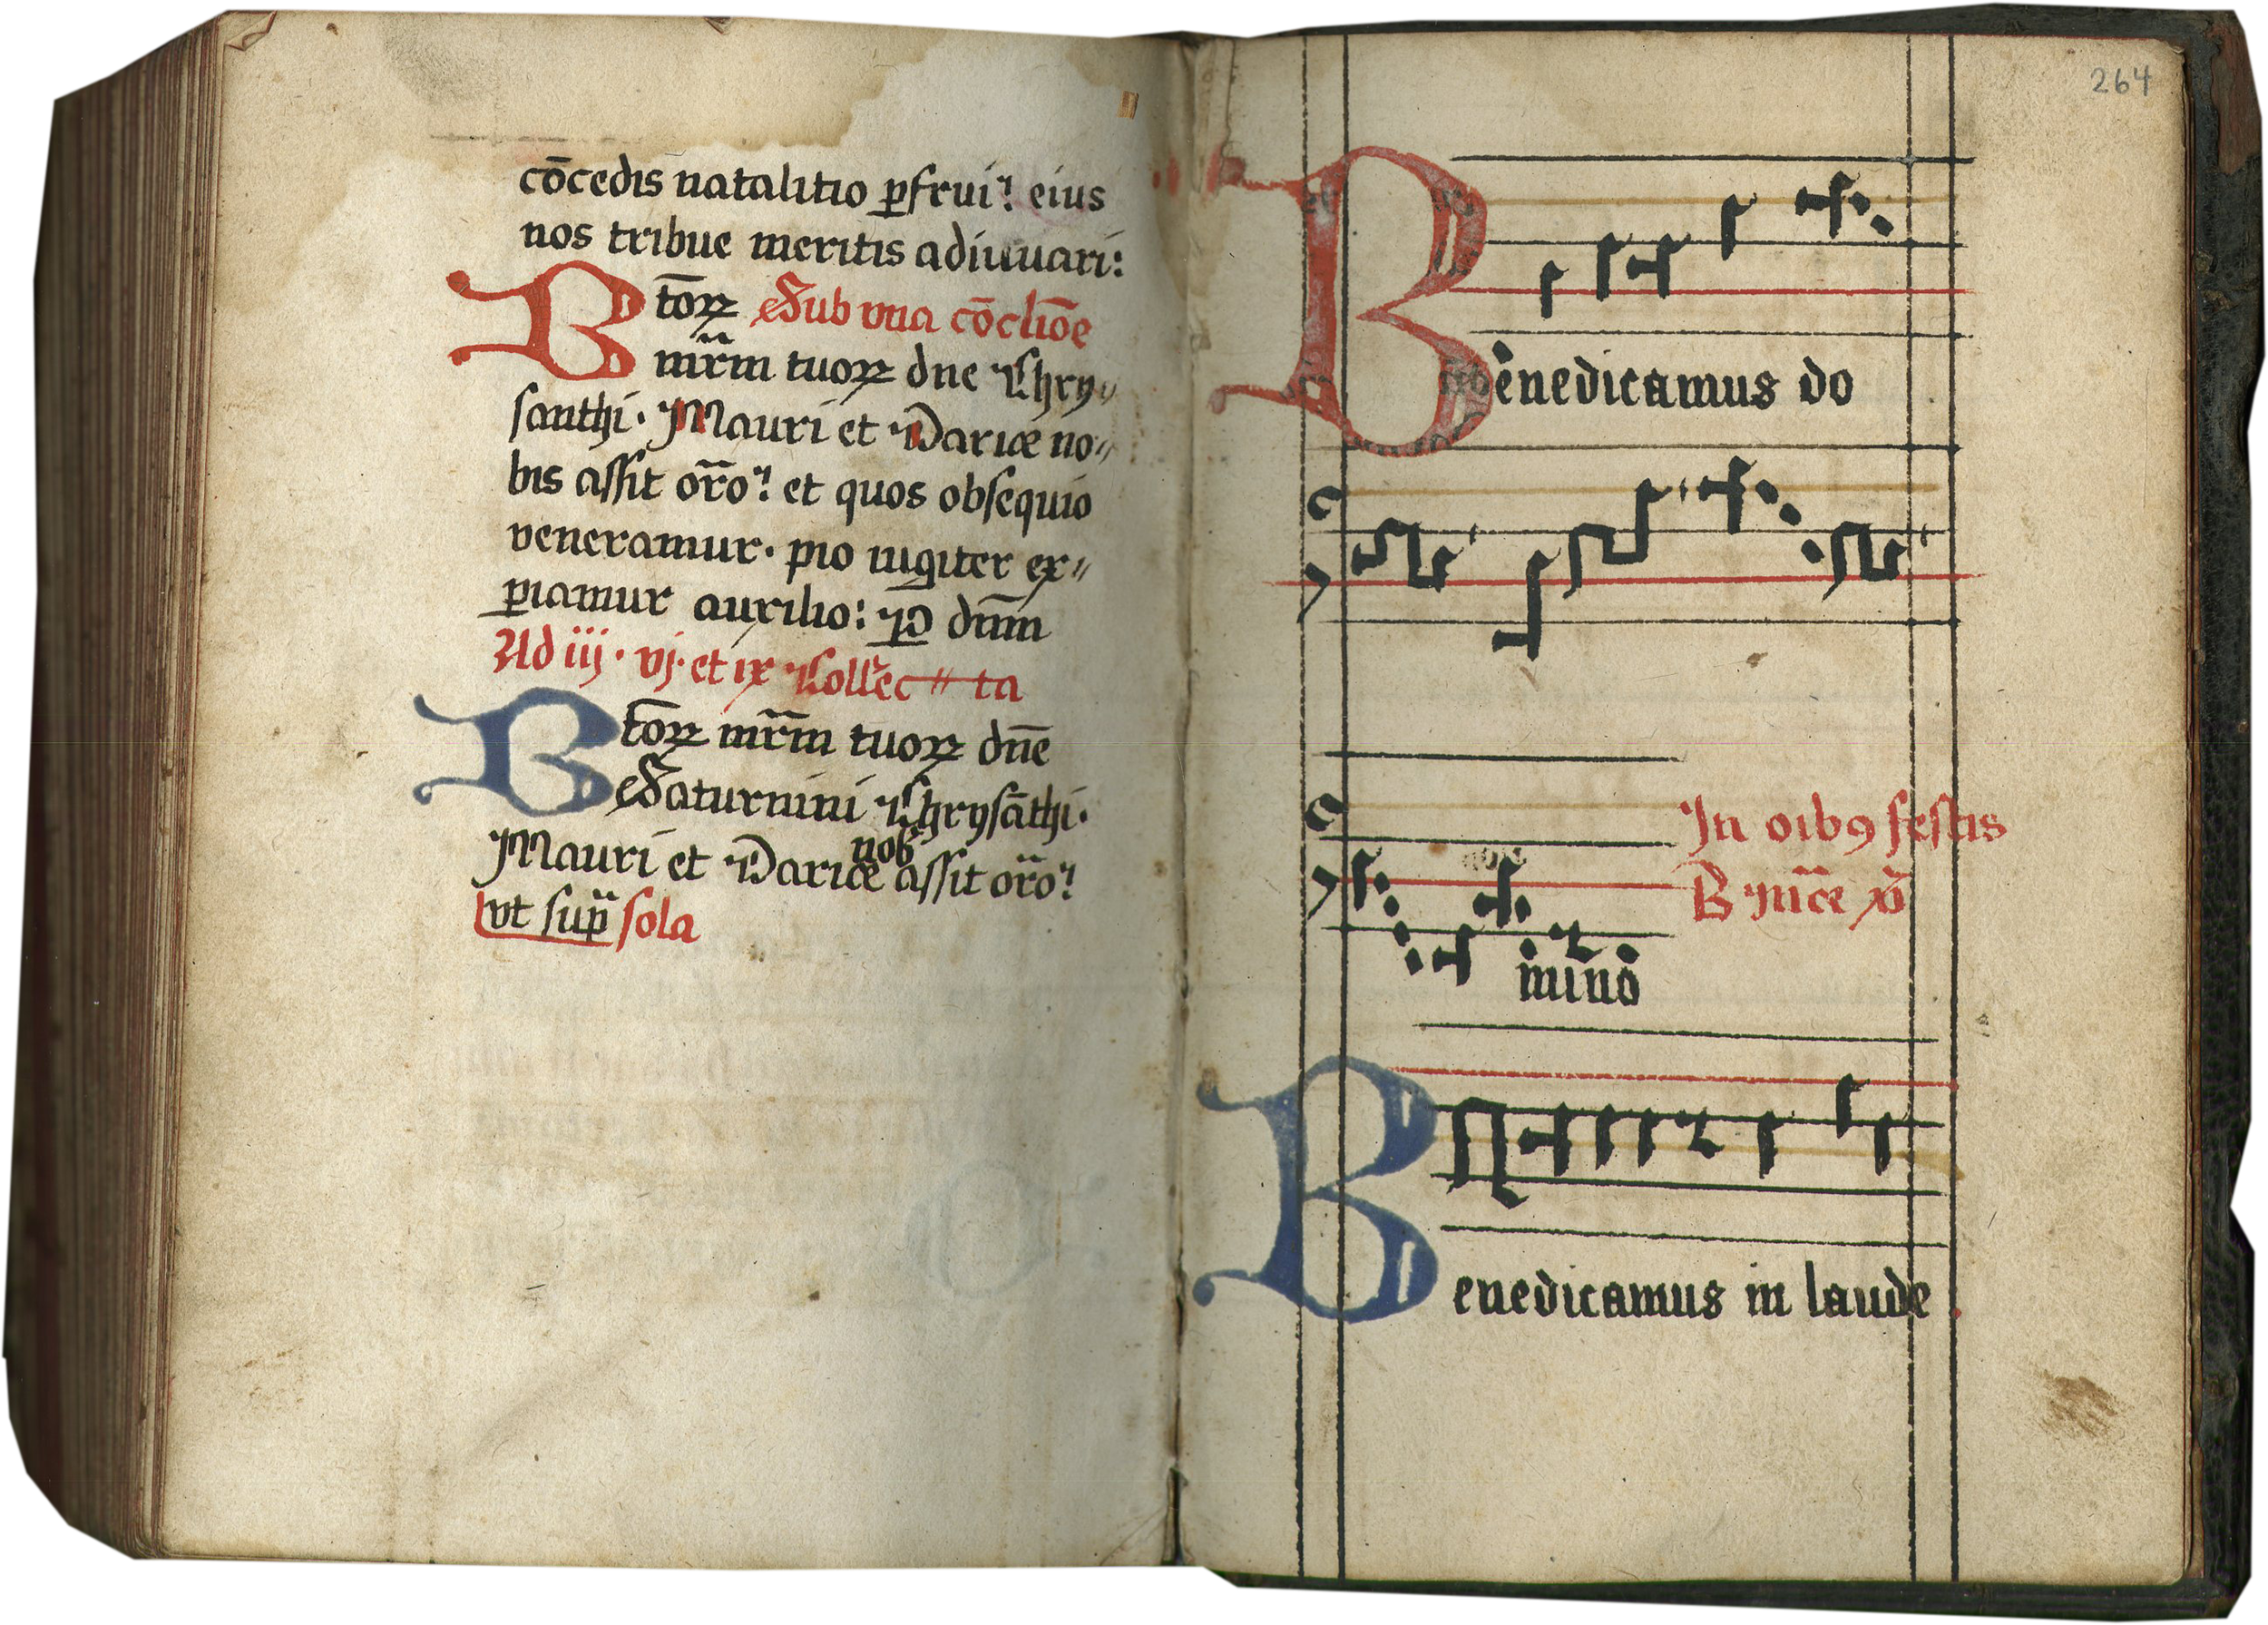 cōcedis natalitio ꝑfrui? eius
nos tribue meritis adiuuari:
Btōꝝ Sub vna cōcliōe
mr̄m tuoꝝ dne Chry〃
santhi. Mauri et Dariæ no〃
bis assit or̄o? et quos obsequio
veneramur. pio iugiter ex〃
piamur auxilio: ꝑ dnm̄
Ad iij. vj. et ix Collec〃ta
Btōꝝ mr̄m tuoꝝ dn̄e
Saturnini Chrysāthi.
nob
Mauri et Darice assit or̄o?
vt sup̄ sola
264
Benedicamus do
In oibꝯ festis
B
mino
Benedicamus in laude